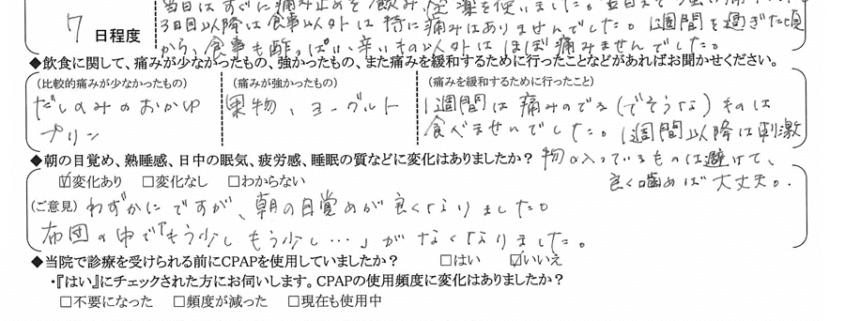 当日はすぐに痛み止めを飲み、座薬を使いました。
3日目以降は食事以外は特に痛みはありませんでした。1週間を過ぎた頃
7 日程度
から、食事も酢っぱい、辛いもの以外はほぼ痛みませんでした。
◆飲食に関して、痛みが少なかったもの、強かったもの、また痛みを緩和するために行ったことなどがあればお聞かせください。
(比較的痛みが少なかったもの) (痛みが強かったもの) (痛みを緩和するために行ったこと)
だしのみのおかゆ 果物、ヨーグルト 1週間は痛みのでる(でそうな)ものは
プリン 食べませんでした。1週間以降は刺激
物の入っているものは避けて、
良く噛めば大丈夫。
◆朝の目覚め、熟睡感、日中の眠気、疲労感、睡眠の質などに変化はありましたか?
☑変化あり □変化なし □わからない
(ご意見) わずかにですが、朝の目覚めが良くなりました。
布団の中で「もう少しもう少し…」がなくなりました。
◆当院で診療を受けられる前にCPAPを使用していましたか? □はい ☑いいえ
・『はい』にチェックされた方にお伺いします。CPAPの使用頻度に変化はありましたか?
□不要になった □頻度が減った □現在も使用中